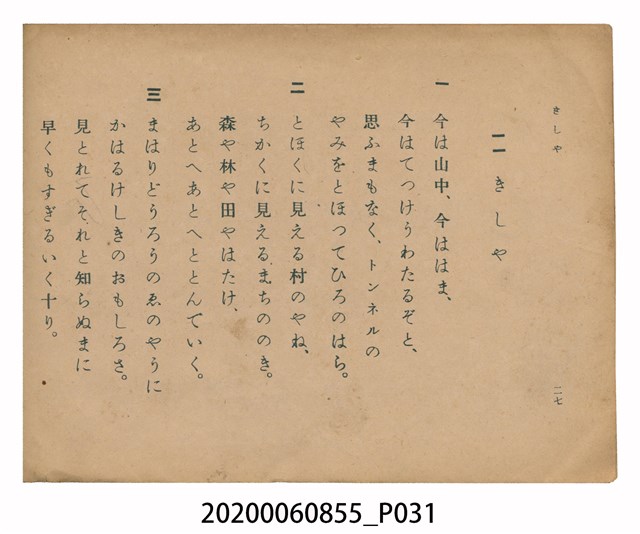 きしや
二七
一一 きしや
一 今は山中、今ははま、
今はてつけうわたるぞと、
思ふまもなく、トンネルの
やみをとほつてひろのはら。
二 とほくに見える村のやね、
ちかくに見えるまちののき。
森や林や田やはたけ、
あとへあとへととんていく。
三 まはりどうろうのゑのやうに
かはるけしきのおもしろさ。
見とれてそれと知らぬまに
早くもすぎるいく十り。
20200060855_P031